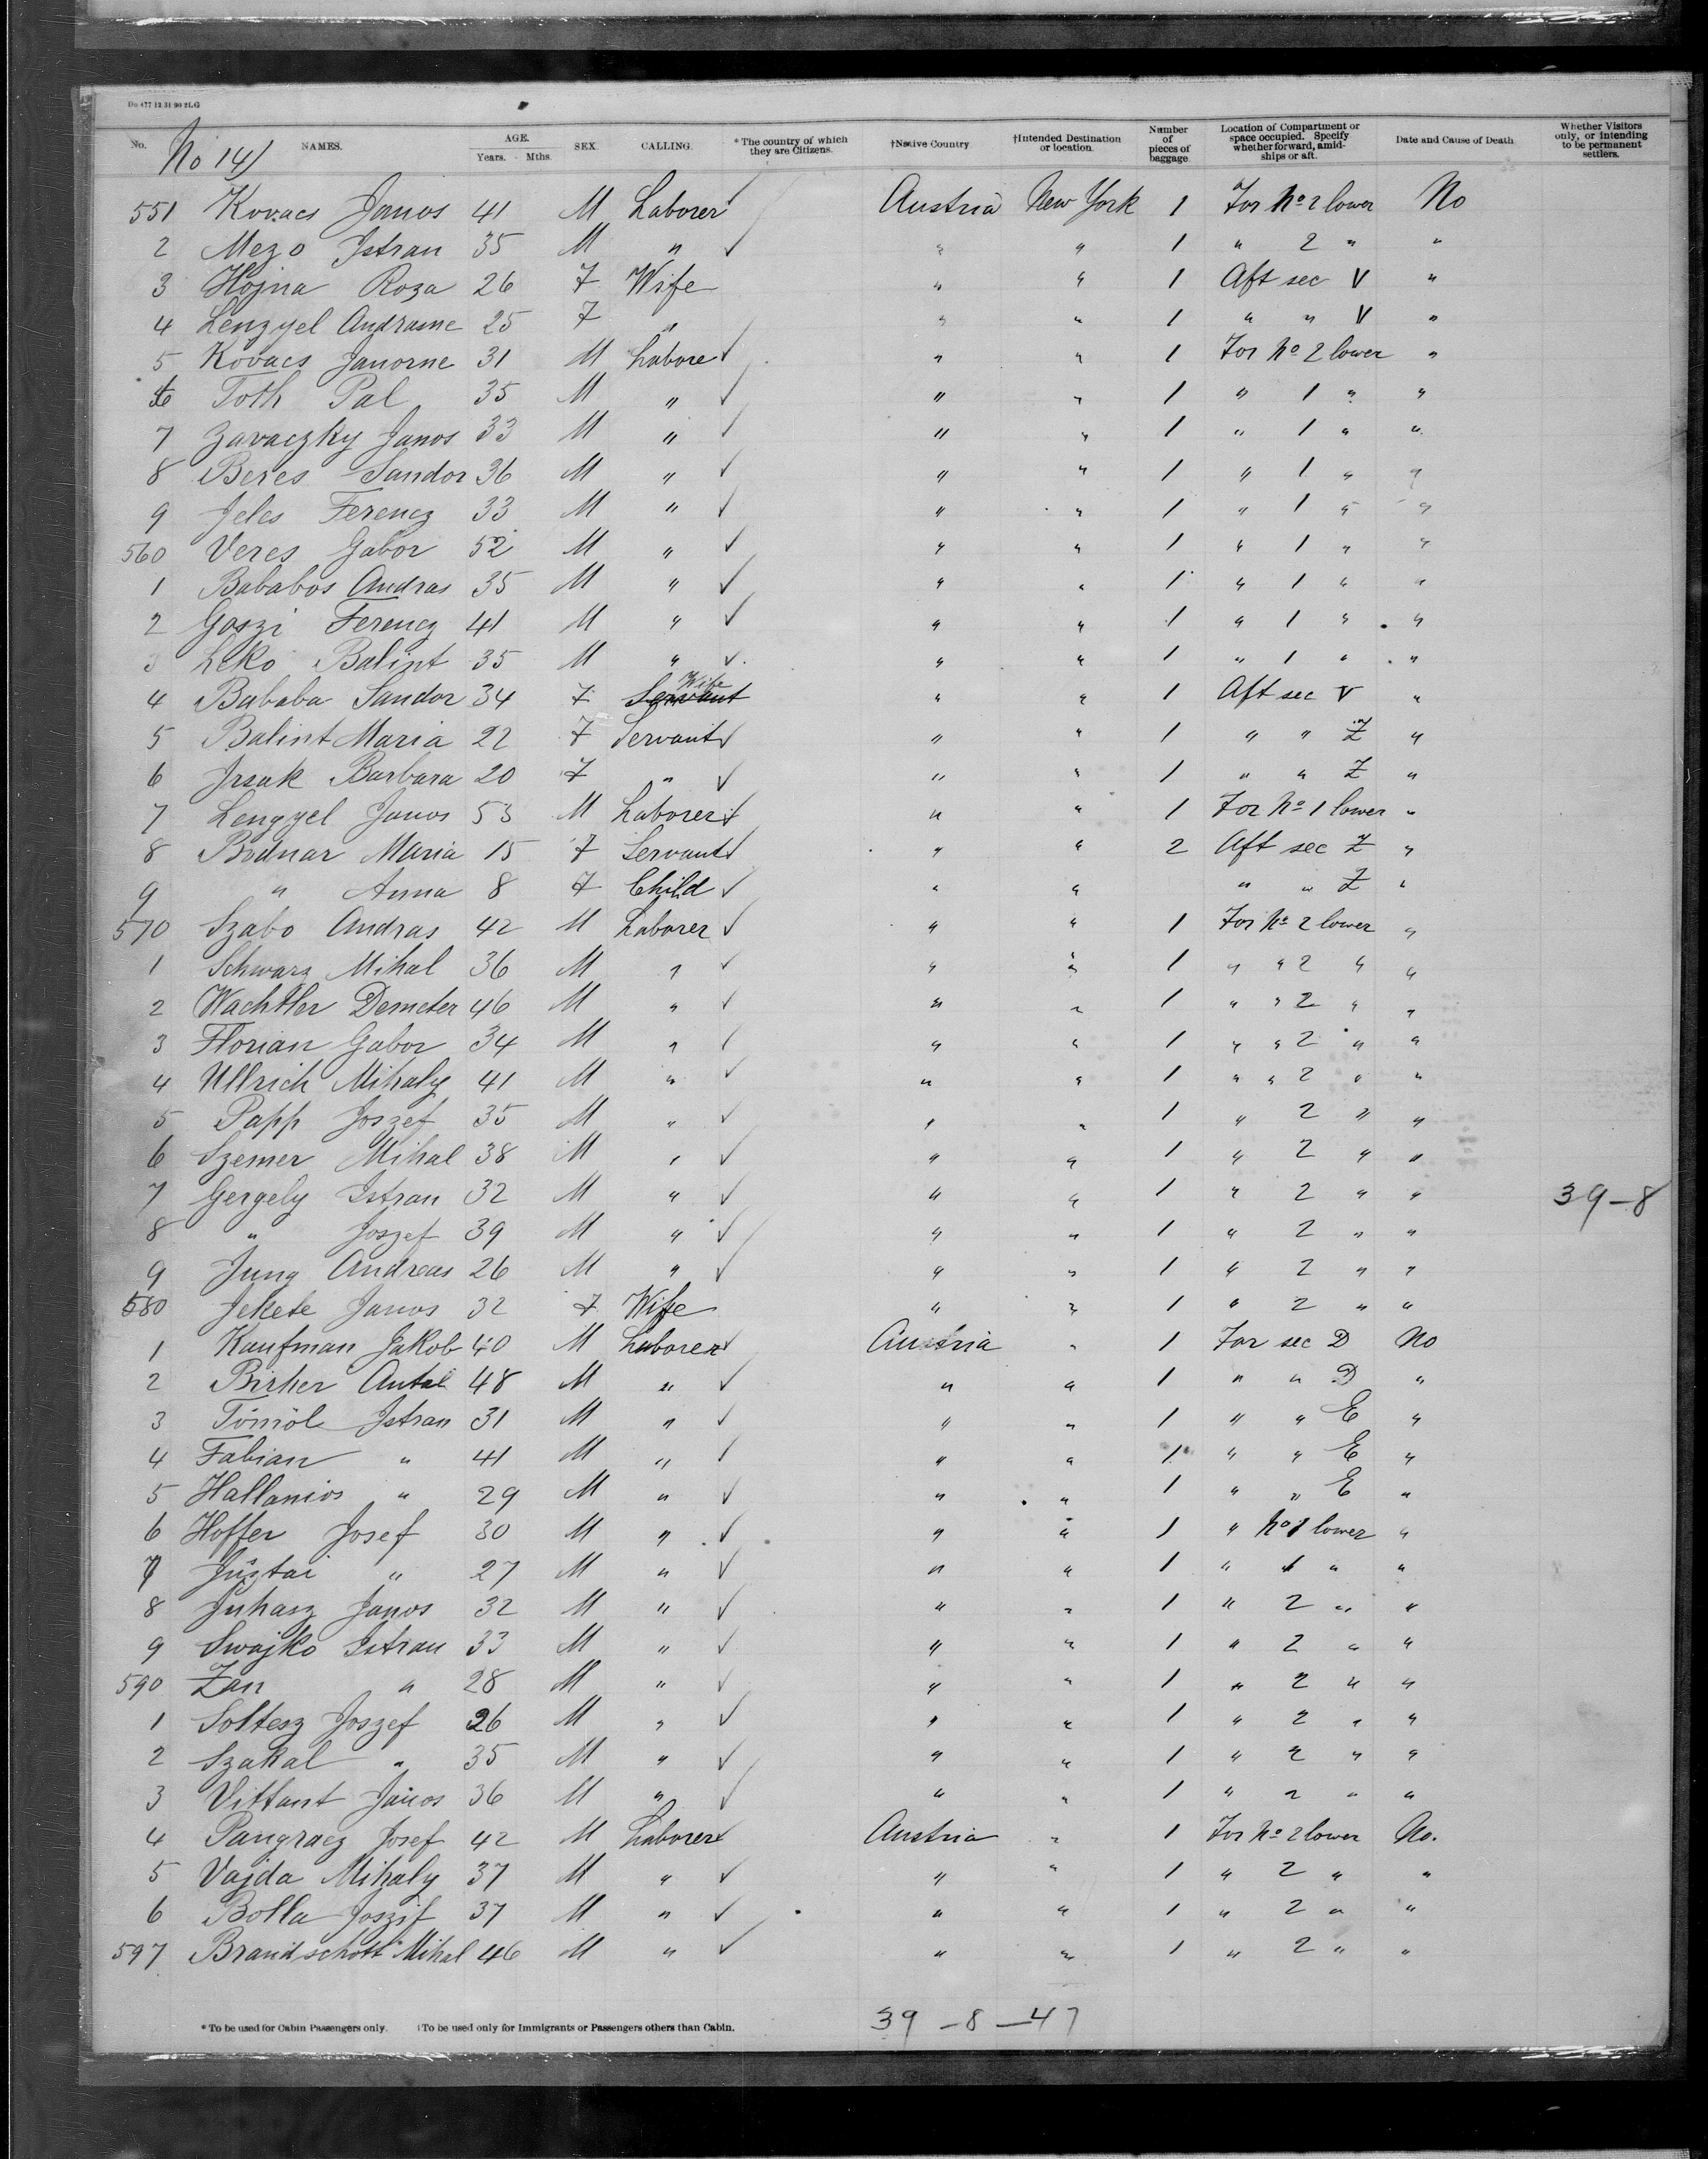 Do 477 12 31 90 2LG
No. NAMES. AGE. Years. Mths. SEX. CALLING. *The country of which they are Citizens. †Native Country †Intended Destination or location. Number of pieces of baggage Location of Compartment or space occupied. Specify whether forward, amid-ships or aft. Date and Cause of Death Whether Visitors only, or intending to be permanent settlers.
No 14)
551 Kovacs Janos 41 M Laborer ✓ Austria New York 1 For No 2 lower No
2 Mezo Istvan 35 M " ✓ " " 1 " 2 " "
3 Hojna Roza 26 F Wife " " 1 Aft sec V "
4 Lengyel Andrasne 25 F " " " 1 " " V "
5 Kovacs Janosne 31 M Labore ✓ " " 1 For No 2 lower "
6 Toth Pal 35 M " ✓ " " 1 " 1 " "
7 Zavaczky Janos 33 M " ✓ " " 1 " 1 " "
8 Beres Sandor 36 M " ✓ " " 1 " 1 " "
9 Jeles Ferencz 33 M " ✓ " " 1 " 1 " "
560 Veres Gabor 52 M " ✓ " " 1 " 1 " "
1 Bababos Andras 35 M " ✓ " " 1 " 1 " "
2 Goszi Ferencz 41 M " ✓ " " 1 " 1 " "
3 Leko Balint 35 M " ✓ " " 1 " 1 " "
4 Bababa Sandor 34 F Servant Wife " " 1 Aft sec V "
5 Balint Maria 22 F Servant ✓ " " 1 " " Z "
6 Irsak Barbara 20 F " ✓ " " 1 " " Z "
7 Lengyel Janos 53 M Laborer ✓ " " 1 For No 1 lower "
8 Bodnar Maria 15 F Servant ✓ " " 2 Aft sec Z "
9 " Anna 8 F Child ✓ " " " " Z "
570 Szabo Andras 42 M Laborer ✓ " " 1 For No 2 lower "
1 Schwarz Mihal 36 M " ✓ " " 1 " " 2 " "
2 Wachtler Demeter 46 M " ✓ " " 1 " " 2 " "
3 Florian Gabor 34 M " ✓ " " 1 " " 2 " "
4 Ullrich Mihaly 41 M " ✓ " " 1 " " 2 " "
5 Papp Joszef 35 M " ✓ " " 1 " 2 " "
6 Szemer Mihal 38 M " ✓ " " 1 " 2 " "
7 Gergely Istvan 32 M " ✓ " " 1 " 2 " " 39-8
8 " Joszef 39 M " ✓ " " 1 " 2 " "
9 Jung Andreas 26 M " ✓ " " 1 " 2 " "
580 Fekete Janos 32 F Wife " " 1 " 2 " "
1 Kaufman Jakob 40 M Laborer ✓ Austria " 1 For sec D No
2 Birher Antal 48 M " ✓ " " 1 " " D "
3 Tömöl Istvan 31 M " ✓ " " 1 " " E "
4 Fabian " 41 M " ✓ " " 1 " " E "
5 Hallanios " 29 M " ✓ " " 1 " " E "
6 Hoffer Josef 30 M " ✓ " " 1 " No 1 lower "
7 Jusztai " 27 M " ✓ " " 1 " 1 " "
8 Juhasz Janos 32 M " ✓ " " 1 " 2 " "
9 Swajko Istvan 33 M " ✓ " " 1 " 2 " "
590 Zan " 28 M " ✓ " " 1 " 2 " "
1 Soltesz Joszef 26 M " ✓ " " 1 " 2 " "
2 Szakal " 35 M " ✓ " " 1 " 2 " "
3 Vittant Janos 36 M " ✓ " " 1 " 2 " "
4 Pangracz Josef 42 M Laborer ✓ Austria " 1 For No 2 lower No.
5 Vajda Mihaly 37 M " ✓ " " 1 " 2 " "
6 Bolla Joszif 37 M " ✓ " " 1 " 2 " "
597 Brandschott Mihal 46 M " ✓ " " 1 " 2 " "
39 - 8 - 47
*To be used for Cabin Passengers only. †To be used only for Immigrants or Passengers others than Cabin.